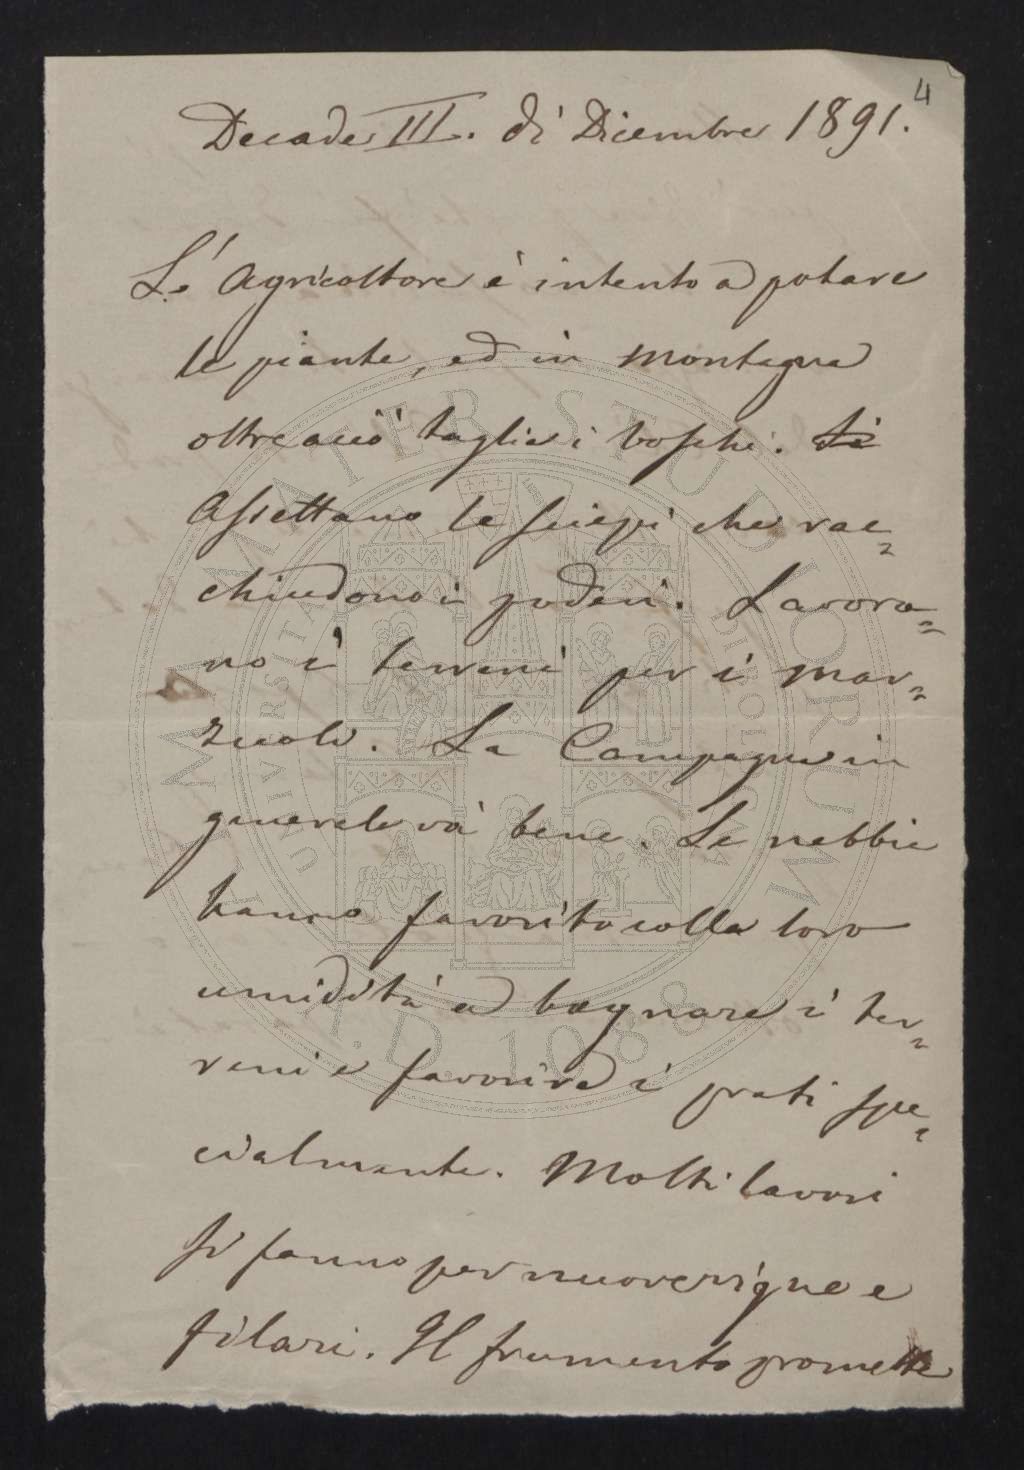 4
Decade III. di Dicembre 1891.
L'Agricoltore è intento a potare
le piante, ed in montagna
oltreciò taglia i boschi. Si
Assettano le sciepi che rac=
chiudono i poderi. Lavora=
no i terreni per i mar=
zuoli. La Campagna in
generale và bene. Le nebbie
hanno favorito colla loro
umidità a bagnare i ter=
reni e favorire i prati spe=
cialmente. Molti lavori
si fanno per nuove vigne e
filari. Il frumento promette
ALMA MATER STUDIORUM
A.D. 1088